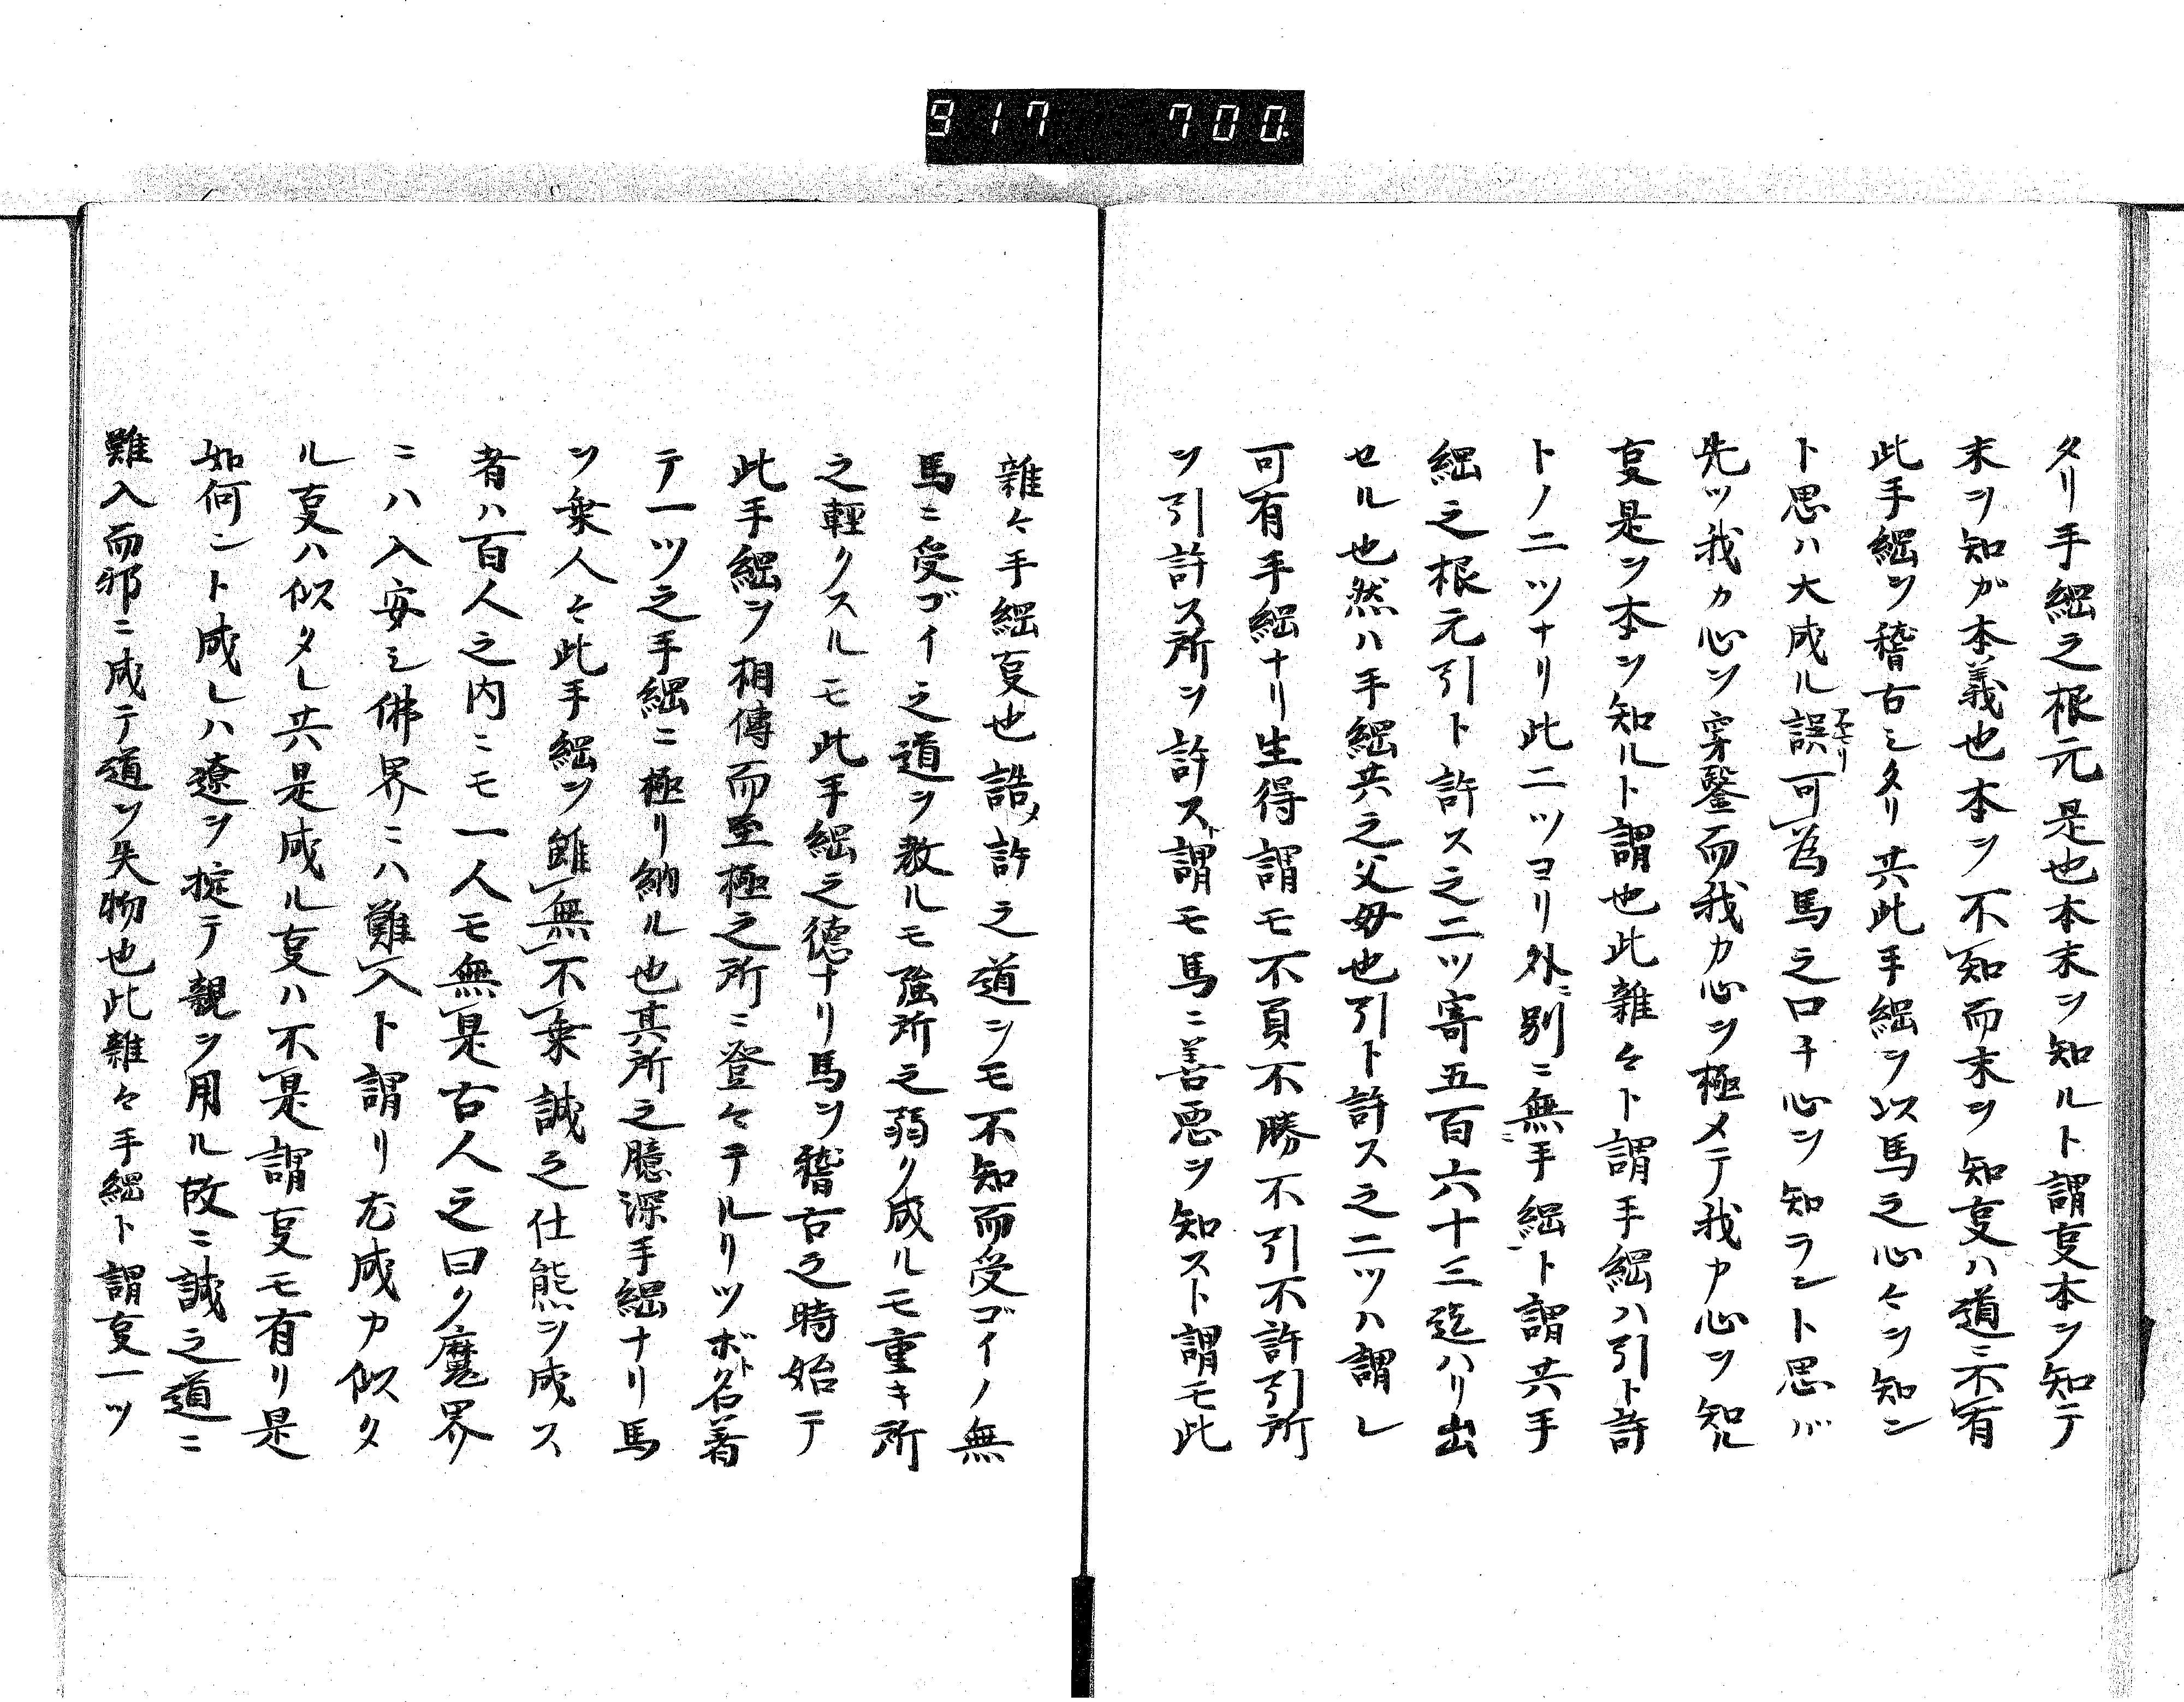 917 700.
タリ手綱之根元是也本末ヲ知ルト謂㕝本ヲ知テ
末ヲ知ガ本義也本ヲ不知而末ヲ知㕝ハ道ニ不有
此手綱ヲ稽古シタリ共此手綱ヲ以馬之心々ヲ知ン
ト思ハ大成ル誤アヤマリ可為馬之口チ心ヲ知ラント思バ
先ツ我カ心ヲ穿鑿而我カ心ヲ極メテ我カ心ヲ知ル
㕝是ヲ本ヲ知ルト謂也此雜々ト謂手綱ハ引ト許
トノ二ツナリ此二ツヨリ外ニ別ニ無手綱ト謂共手
綱之根元引ト許ス之二ツ寄五百六十三迄ハリ出
セル也然ハ手綱共之父母也引ト許ス之二ツハ謂レ
可有手綱ナリ生得謂モ不負不勝不引不許引所
ヲ引許ス所ヲ許スト謂モ馬ニ善悪ヲ知スト謂モ此
雜々手綱㕝也誥メ許之道ヲモ不知而受ゴイノ無
馬ニ受ゴイ之道ヲ教ルモ強所之弱ク成ルモ重キ所
之輕クスルモ此手綱之德ナリ馬ヲ稽古之時始テ
此手綱ヲ相傳而至極之所ニ登々テルリツボト名著
テ一ツ之手綱ニ極リ納ル也其所之臆深手綱ナリ馬
ヲ乗人々此手綱ヲ雖無不乗誠之仕熊ヲ成ス
者ハ百人之内ニモ一人モ無是古人之曰ク魔界
ニハ入安シ佛界ニハ難入ト謂リ尤成カ似タ
ル㕝ハ似タレ共是成ル㕝ハ不是謂㕝モ有リ是
如何ント成レハ遼ヲ掟テ親ヲ用ル故ニ誠之道ニ
難入而邪ニ成テ道ヲ失物也此雜々手綱ト謂㕝一ツ